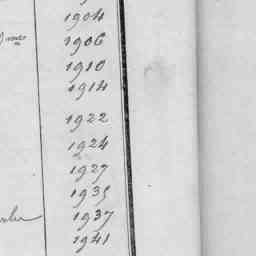 1904
1906
1910
1914
1922
1924
1927
1935
1937
1941